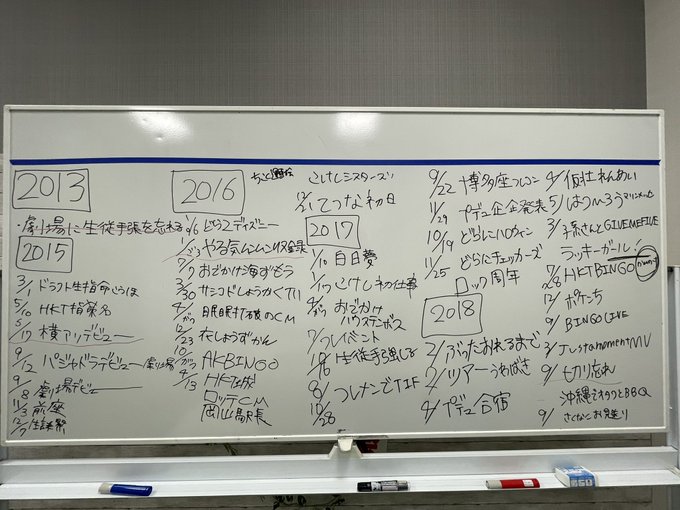 2013
・劇場に生徒手張を忘れる
2015
3/1 ドラフト生指命
5/10 HKT指名
5/17 横アリデビュー
9/12 パジャドラデビュー
9/8 劇場デビュー
11/3 前座
12/7 生誕祭
2016
1/6 どらディズニー
やる気ムンムン収録
7/7 おでかけ海ずもう
3/30 サシコドしょうかくTU
4/ 目民目打破のCM
12/23 花しょうずかん
10/ AKBINGO
4/13 HKT城
ロッテCM
岡山駅長
こけしシスターズ
12/21 てつな初日
2017
1/10 白日夢
1/17 こけし初仕事
4/ おでかけ
ハウステンボス
7/ つれイベント
10/16 生徒手張
8/ つれメンでTIF
10/28
9/22 博多座
11/29 プデュ企画発表
10/19 どらにハロウィン
11/25 どらにチェッカーズ
ロック周年
2018
2/ ぶったおれるまで
2/ ツアーうわばき
4/ プデュ合宿
4/ 仮社れんあい
5/ はつ
3/ 孫さんとGIVE ME FIVE
ラッキーガール!
7/28 HKTBINGO
12/ ポケっち
9/ BINGO LIVE
3/ Just a moment MV
9/ 切り忘れ
沖縄でオタクとBBQ
9/ さくなこお見送り